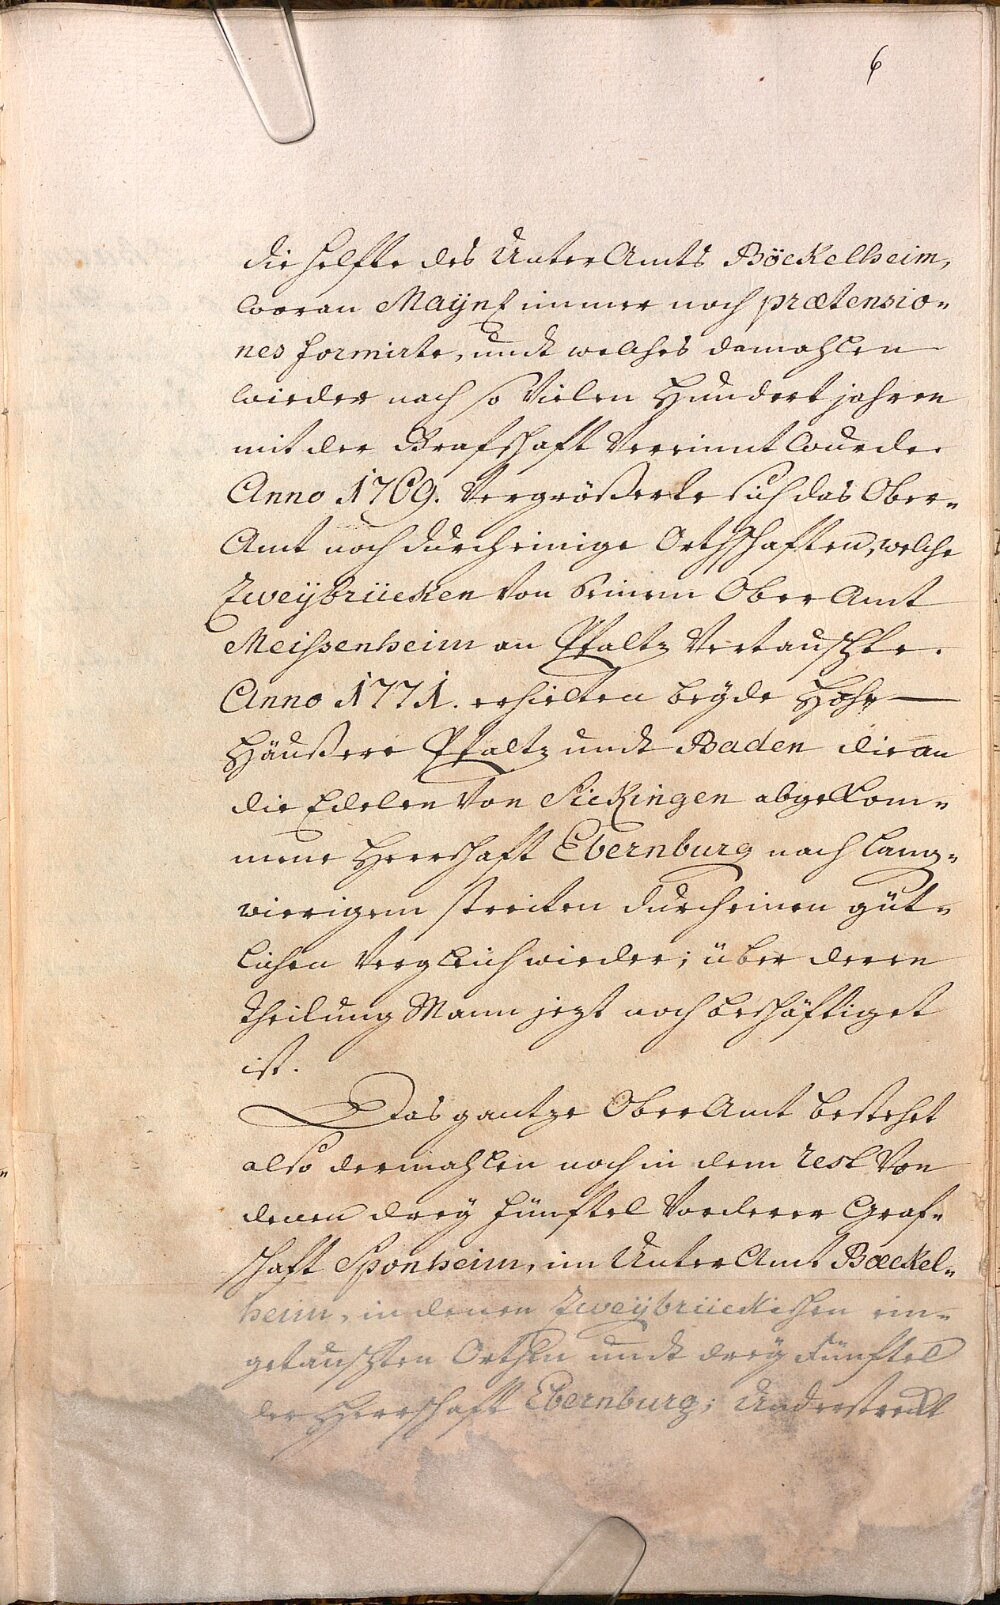 6
die helfte des UnterAmts Böckelheim,
woran Maÿnz immer noch prætensio-
nes formirte, undt welches damahlen
wieder nach so Vielen Hundert jahren
mit der Grafschaft Vereinnt wurde.
Anno 1769. Vergrößerte sich das Ober-
Amt noch durch einige Orthschaften, welche
Zweÿbrücken Von seinem OberAmt
Meissenheim an Pfaltz Vertauschte.
Anno 1771. erhielten beÿde Hohe
Häußere Pfaltz undt Baden die an
die Edelen Von Sickingen abgekom-
mene Herrschaft Ebernburg nach lang-
wierigem streiten durch einen güt-
lichen Vergleich wieder; über deren
theilung Mann jezt noch beschäftiget
ist.
Das gantze OberAmt bestehet
also dermahlen noch in dem rest Von
denen dreÿ fünftel Vorderer Graf-
schaft Sponheim, im UnterAmt Bœckel-
heim, in denen Zweÿbrückischen ein-
getauschten Orthen undt dreÿ fünftel
der Herrschaft Ebernburg; Und erstreckt